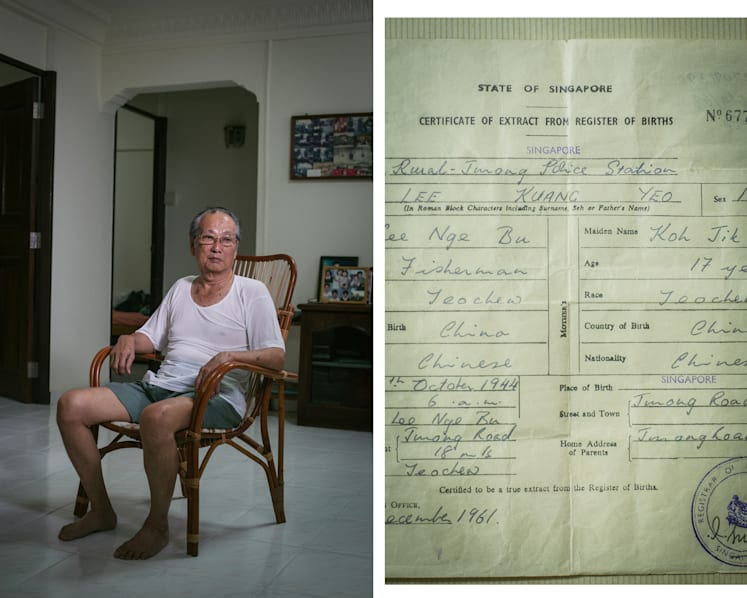 STATE OF SINGAPORE
CERTIFICATE OF EXTRACT FROM REGISTER OF BIRTHS
Nº 677
SINGAPORE
Rural-Jurong Police Station
LEE KUANG YEO
Sex
(In Roman Block Characters Including Surname, Seh or Father's Name)
ee Nge Bu
Maiden Name Koh Jik
Fisherman
Age 17 ye
Teochew
Race Teochew
MOTHER'S
Birth China
Country of Birth Chin
Chinese
Nationality Chines
th October 1944
Place of Birth SINGAPORE
6 a.m.
Street and Town Jurong Road
Lee Nge Bu
Jurong Road
Home Address of Parents Jurong Road
18 m/s
Teochew
Certified to be a true extract from the Register of Births.
OFFICE,
ecember 1961.
REGISTRAR O
SINGA